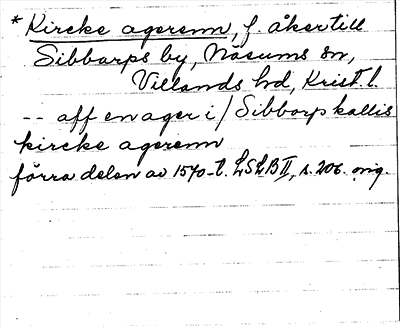 * Kircke agerenn, f. åker till
Sibbarps by, Näsums sn,
Villands hd, Krist. l.
-- aff en ager i / Sibborp kallis
kircke agerenn
förra delen av 1570-t. LSLB II, s. 206. orig.